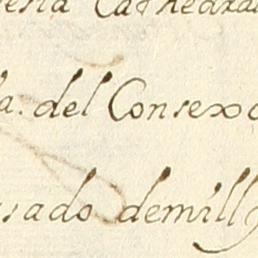 esia Cathedral
a. del Consexo
sado demill y